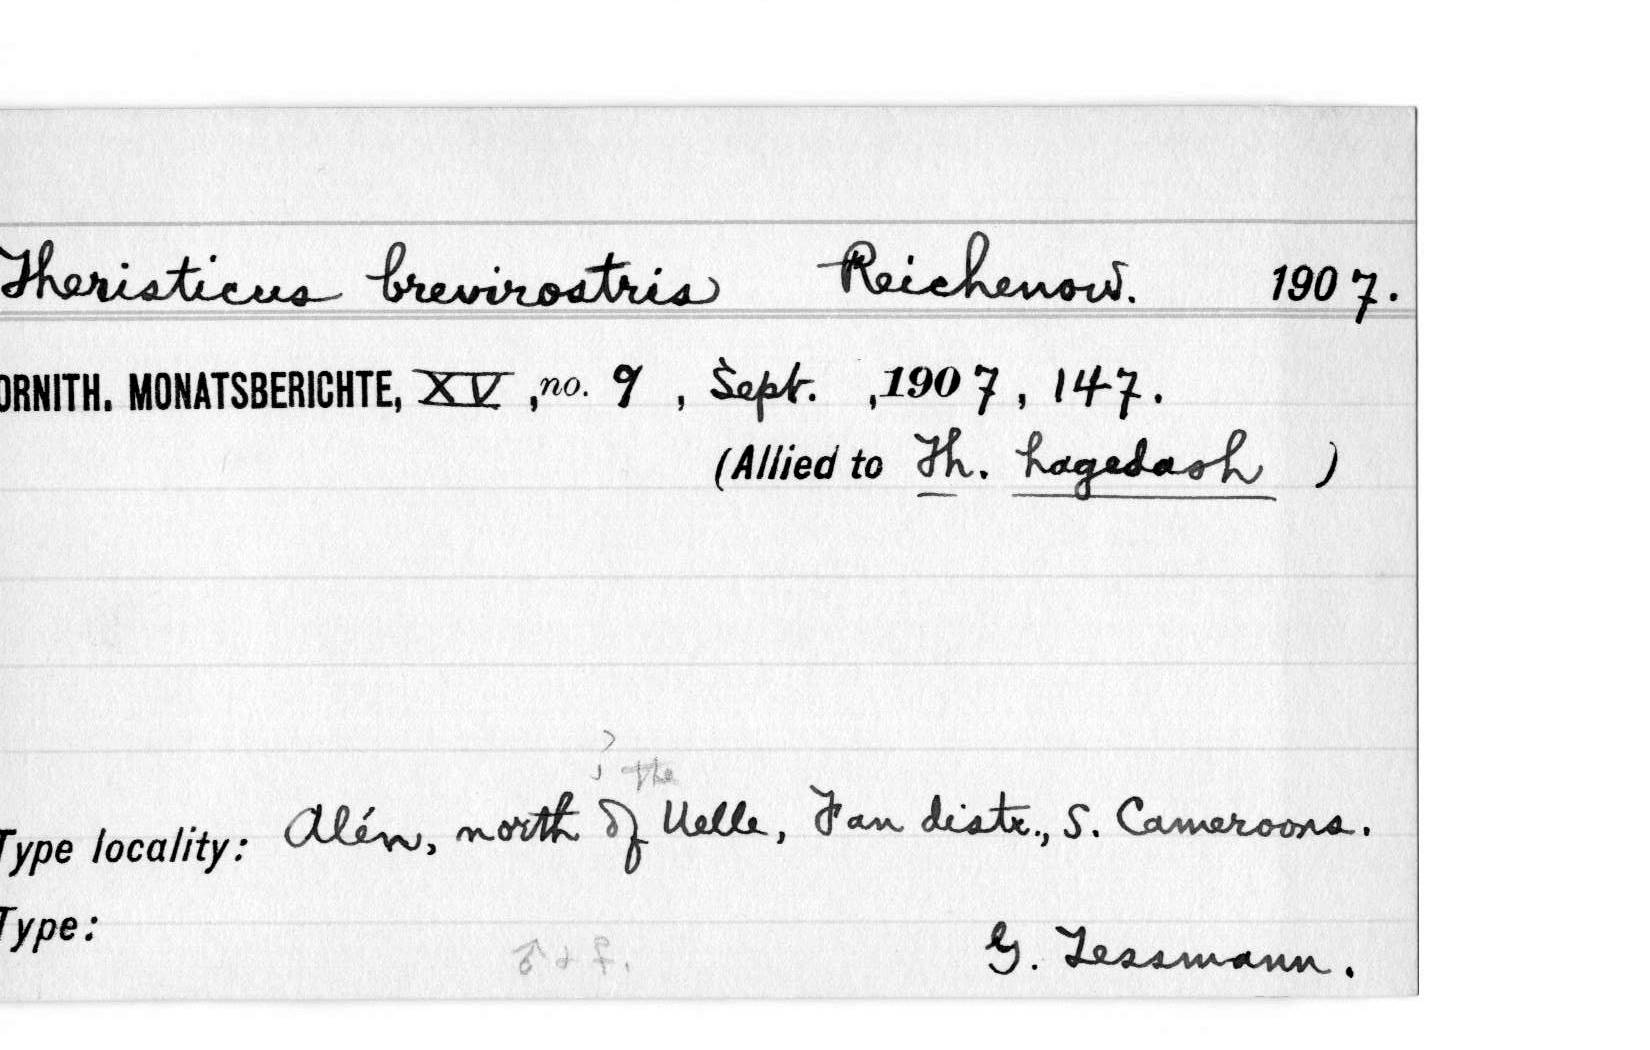 Theristicus brevirostris Reichenow. 1907.
ORNITH. MONATSBERICHTE, XV, no. 9, Sept., 1907, 147.
(Allied to Th. hagedash)
? the
Type locality: Alén, north of Uelle, Fan distr., S. Cameroons.
Type: ♂ & ♀. G. Tessmann.